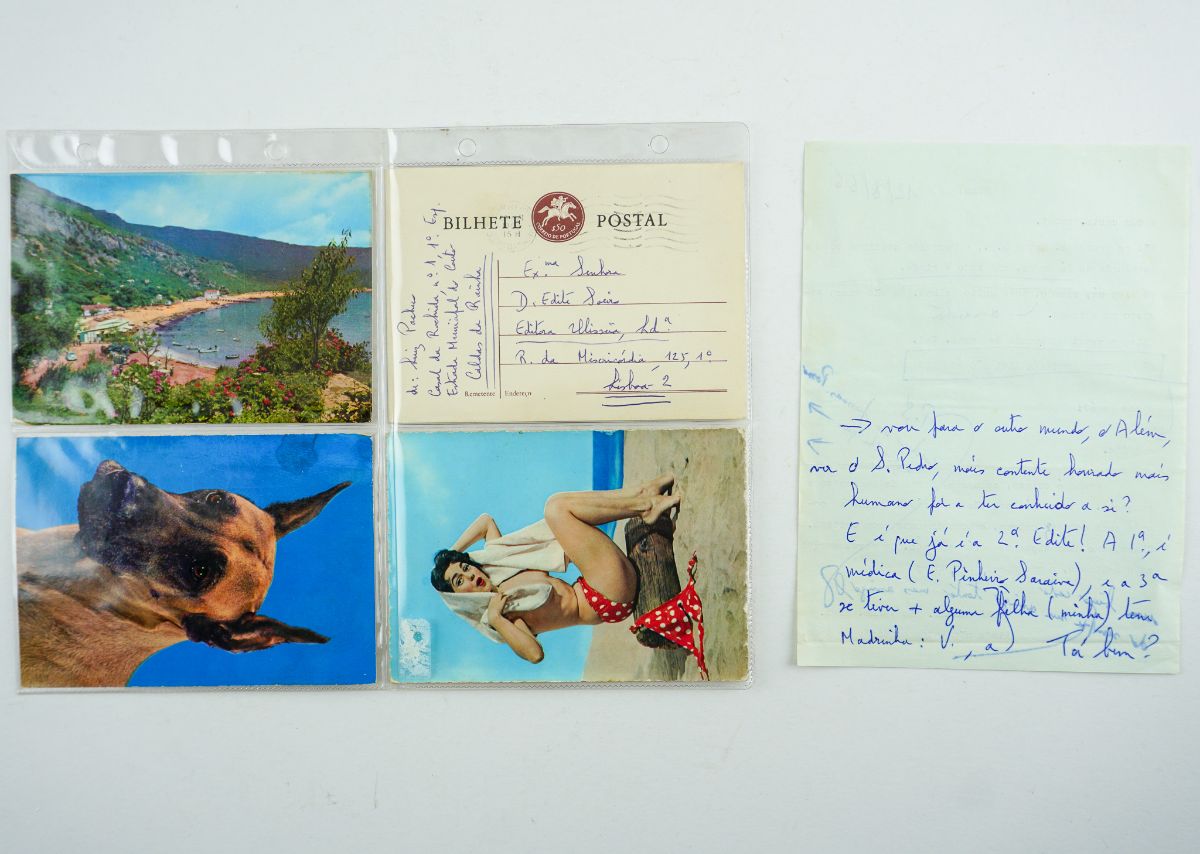 BILHETE POSTAL
1$0
CORREIO DE PORTUGAL
15 H
Ex.ma Senhora
D. Edite Soeiro
Editora Ulisseia, Ldª
R. da Misericórdia, 125, 1º
Lisboa-2
Remetente Endereço
de: Luiz Pacheco
Casal da Rochida nº 1, 1º Esq.
Estrada Municipal do Coto
Caldas da Rainha
12/8/66
→ vou para o outro mundo, o Além,
ver o S. Pedro, mais contente honrado mais
humano por a ter conhecido a si?
E é que já é a 2ª Edite! A 1ª, é
médica (E. Pinheiro Saraiva), e a 3ª
se tiver + alguma filha (minha) tem
Madrinha: V., a) Tá bem?